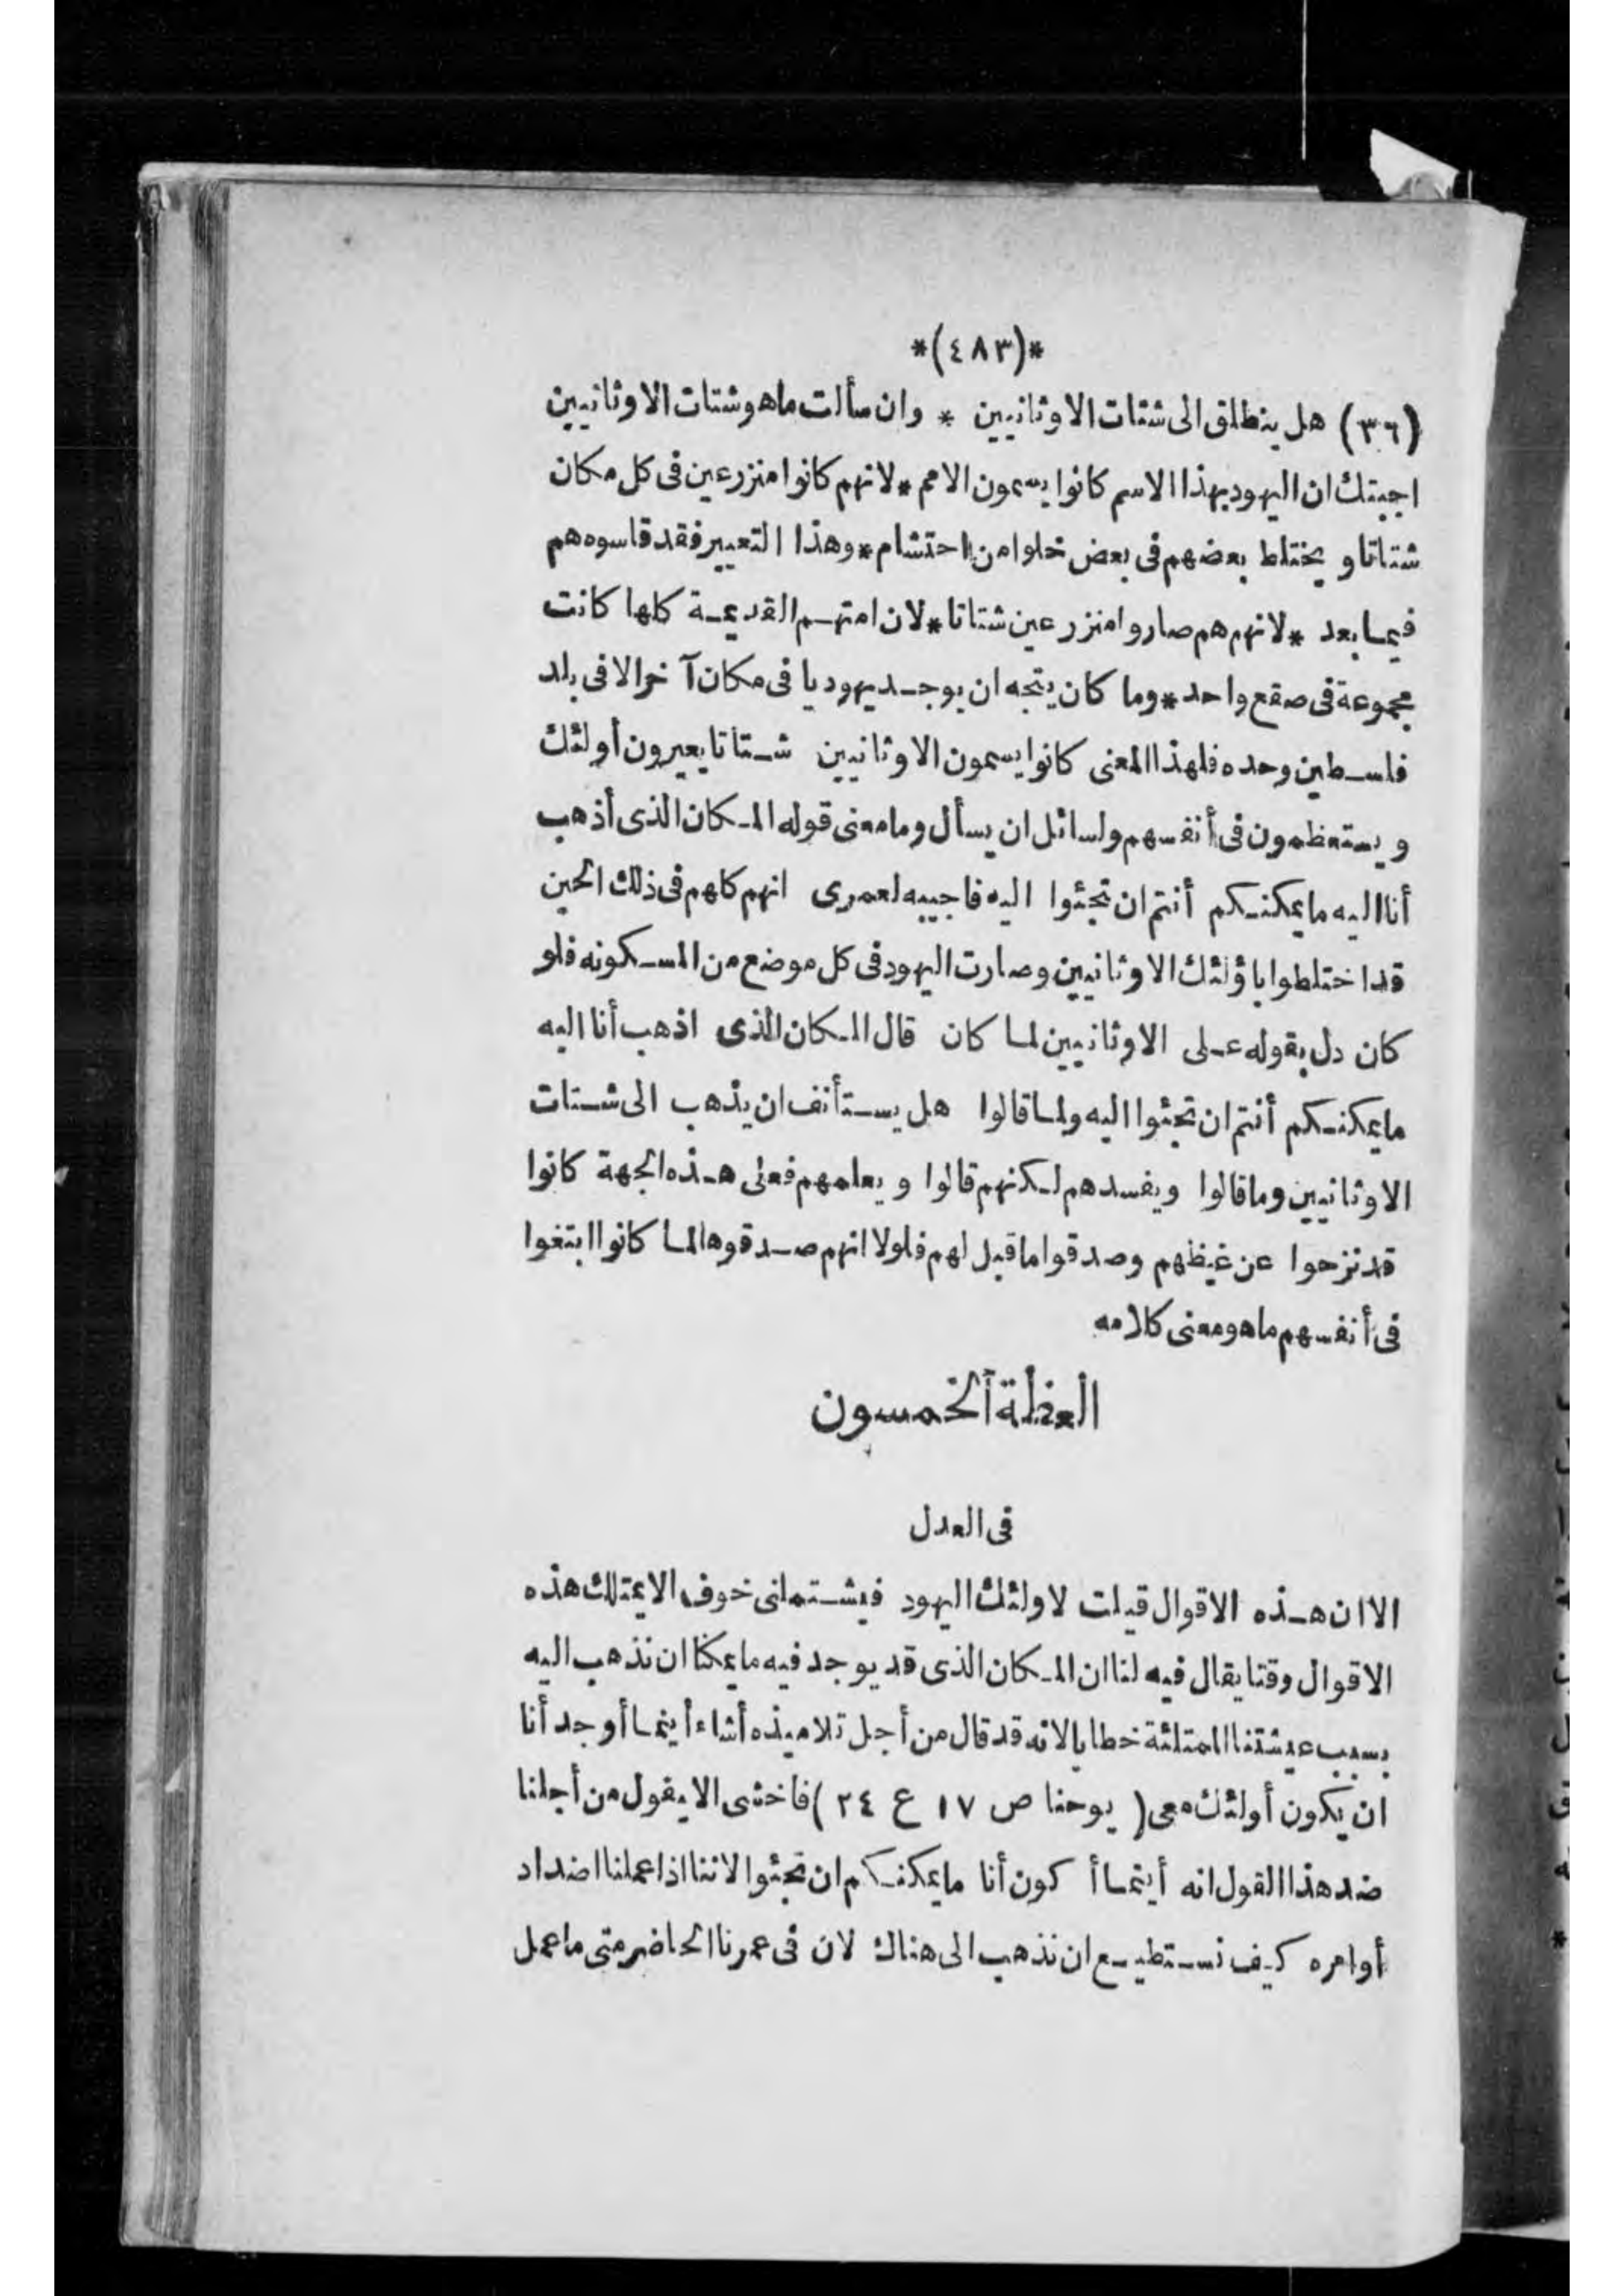 *(٤٨٣)*
(٣٦) هل ينطلق الى شتات الاوثانيين * وان سألت ماهو شتات الاوثانيين
اجبتك ان اليهود بهذا الاسم كانوا يسمون الامم * لانهم كانوا منزرعين فى كل مكان
شتاتا و يختلط بعضهم فى بعض خلوا من احتشام * وهذا التعيير فقد قاسوه هم
فيما بعد * لانهم هم صاروا منزرعين شتاتا * لان امتهم القديمة كلها كانت
مجموعة فى صقع واحد * وما كان يتجه ان يوجد يهوديا فى مكان آخر الا فى بلد
فلسطين وحده فلهذا المعنى كانوا يسمون الاوثانيين شتاتا يعيرون أولئك
و يستعظمون فى أنفسهم ولسائل ان يسأل وما معنى قوله المكان الذى أذهب
أنا اليه ما يمكنكم أنتم ان تجئوا اليه فاجيبه لعمرى انهم كلهم فى ذلك الحين
قد اختلطوا باؤلئك الاوثانيين وصارت اليهود فى كل موضع من المسكونه فلو
كان دل بقوله على الاوثانيين لما كان قال المكان الذى اذهب أنا اليه
ما يمكنكم أنتم ان تجئوا اليه ولما قالوا هل يستأنف ان يذهب الى شتات
الاوثانيين وما قالوا ويفسدهم لكنهم قالوا و يعلمهم فعلى هذه الجهة كانوا
قد نزحوا عن غيظهم وصدقوا ما قيل لهم فلولا انهم صدقوها لما كانوا ابتغوا
فى أنفسهم ماهو معنى كلامه
العظة الخمسون
فى العدل
الا ان هذه الاقوال قيلت لاولئك اليهود فيشتملنى خوف الا يمتلك هذه
الاقوال وقتا يقال فيه لنا ان المكان الذى قد يوجد فيه ما يمكنا ان نذهب اليه
بسبب عيشتنا الممتلئة خطايا لانه قد قال من أجل تلاميذه أشاء أينما أوجد أنا
ان يكون أولئك معى ( يوحنا ص ١٧ ع ٢٤ ) فاخشى الا يقول من أجلنا
ضد هذا القول انه أينما أكون أنا ما يمكنكم ان تجئوا لاننا اذا عملنا اضداد
أوامره كيف نستطيع ان نذهب الى هناك لان فى عمرنا الحاضر متى ما عمل